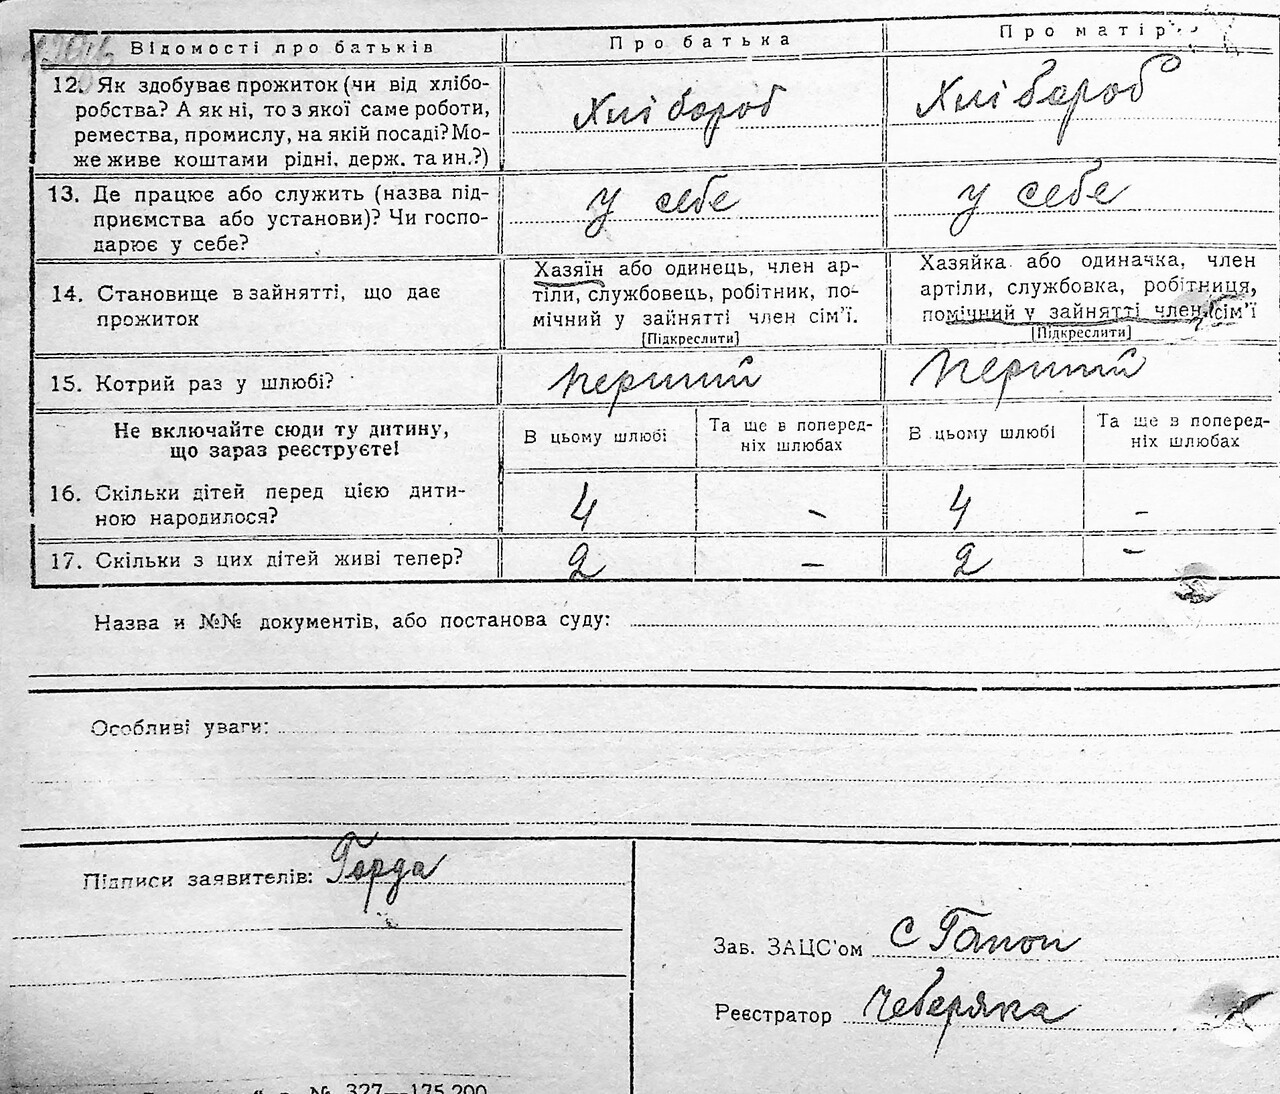 Відомості про батьків
Про батька
Про матір
12. Як здобуває прожиток (чи від хлібо-
робства? А як ні, то з якої саме роботи,
ремества, промислу, на якій посаді? Мо-
же живе коштами рідні, держ. та ин.?)
Хлібороб
Хлібороб
13. Де працює або служить (назва під-
приємства або установи)? Чи госпо-
дарює у себе?
у себе
у себе
14. Становище в зайнятті, що дає
прожиток
Хазяїн або одинець, член ар-
тіли, службовець, робітник, по-
мічний у зайнятті член сім'ї.
[Підкреслити]
Хазяйка або одиначка, член
артіли, службовка, робітниця,
помічний у зайнятті член сім'ї
[Підкреслити]
15. Котрий раз у шлюбі?
перший
перший
Не включайте сюди ту дитину,
що зараз реєструєте!
В цьому шлюбі
Та ще в поперед-
ніх шлюбах
В цьому шлюбі
Та ще в поперед-
ніх шлюбах
16. Скільки дітей перед цією дити-
ною народилося?
4 - 4 -
17. Скільки з цих дітей живі тепер?
2 - 2 -
Назва и №№ документів, або постанова суду:
Особливі уваги:
Підписи заявителів: Горда
Зав. ЗАЦС'ом С Гапон
Реєстратор Чеберяка
№ 327—175.200